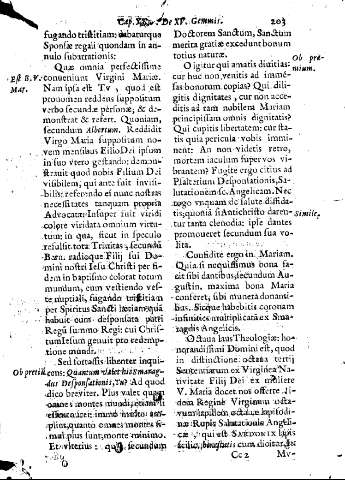 Cap. XXIV. De XV. Gemmis. 203
fugando tristitiam: dabaturque
Sponsæ regali quondam in an-
nulo subarrationis:
Quæ omnia perfectissime
Est B. V. conveniunt Virgini Mariæ.
Mar. Nam ipsa est Tv, quod est
pronomen reddens suppositum
verbo secundæ personæ; & de-
monstrat & refert. Quoniam,
secundum Albertum. Reddidit
Virgo Maria suppositum no-
vem mensibus Filio Dei ipsum
in suo vtero gestando: demon-
stravit quod nobis Filium Dei
visibilem, qui ante fuit invisi-
bilis: referendo ei nunc nostras
necessitates tanquam propria
Advocata: Insuper fuit viridi
colore viridata omnium virtu-
tum: in qua, sicut in speculo
refulsit tota Trinitas, secundum
Bar. radioque Filij sui Do-
mini nostri Iesu Christi per fi-
dem in baptismo colorat totum
mundum, cum vestiendo ves-
te nuptiali, fugando tristitiam
per Spiritus Sancti lætitiam: quâ
habuit eum desponsata patri
Regû summo Regi: cui Chris-
tum Iesum genuit pro redemp-
tione mundi.
Sed fortassis libenter inqui-
Ob pretiû. ens: Quantum valet hic Smarag-
dus Desponsationis, Tu? Ad quod
dico breviter. Plus valet quam
omnes montes mundi, etiam si
essent aurei: immò multò am-
plius, quantò omnes montes
mai plus sunt, monte minimo.
Et vlterius: quia, secundum
Doctorem Sanctum, Sanctum
merita gratiæ excedunt bonum
totius naturæ.
O igitur qui amatis divitias: Ob præ-
cur huc non venitis ad immê- mium.
sas bonorum copias? Qui dili-
gitis dignitates, cur non acce-
ditis ad tam nobilem Mariam
principissam omnis dignitatis?
Qui cupitis libertatem: cur sta-
tis quia pericula vobis immi-
nent: An non videtis retro,
mortem iaculum super vos vi-
brantem? Fugite ergo citius ad
Psalterium Desponsationis, Sa-
lutationem sc. Angelicam. Nec
rogo vnquam de salute diffida-
tis; quonia si Antichristo daren- Simile,
tur tanta clenodia: ipse dantes
promoueret secundum sua vo-
lita.
Confidite ergo in Mariam.
Quia si nequissimus bona fa-
cit sibi dantibus, secundum Au-
gustin. maxima bona Maria
conferet, sibi munera donanti-
bus. Sicque habebitis coronam
infinities multiplicatâ ex Sma-
ragdis Angelicis.
Octava laus Theologiæ: ho-
norandissimi Domini est, quod
in distinctione octava tertij
Sententiarum ex Virginea Na-
tivitate Filij Dei ex muliere
V. Maria docet nos offerre ei-
dem Reginæ Virginum octa-
vum lapillum octavæ lapisodi-
næ Rupis Salutationis Angeli-
cæ, qui est SARDONIX lapis
scilic. benefactis cum dicitur,
Cc 2 Mv-